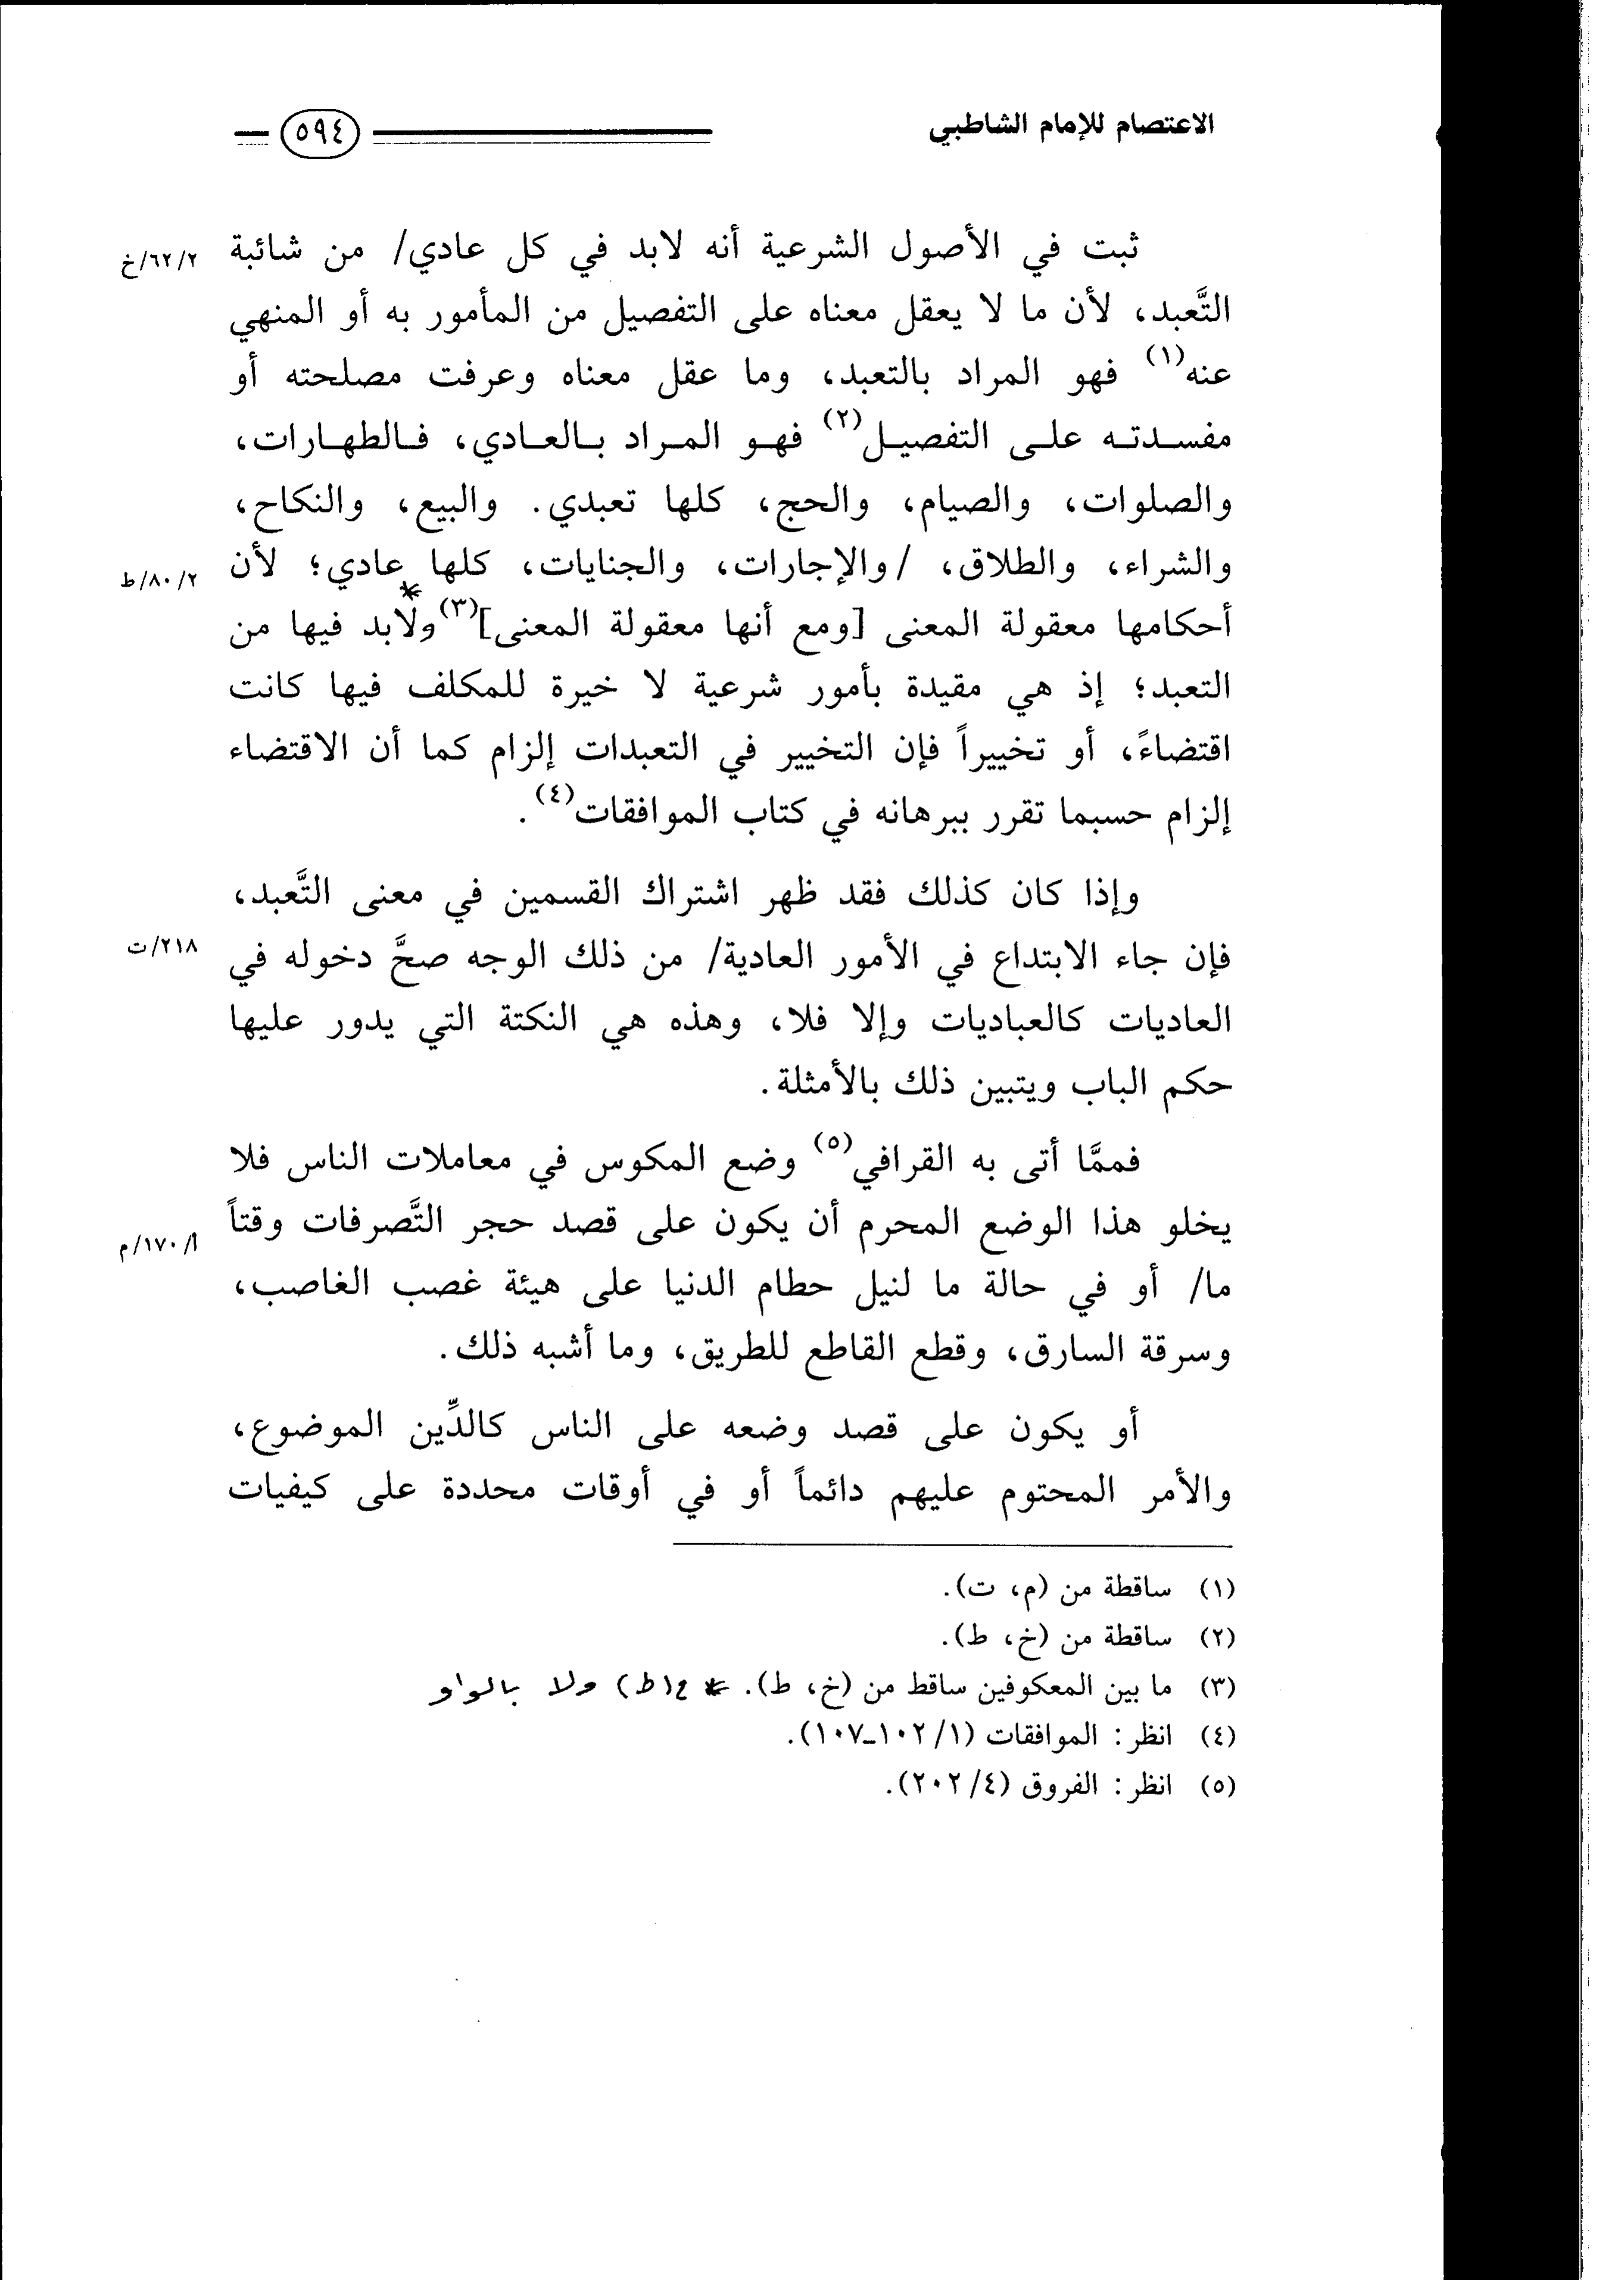 الاعتصام للإمام الشاطبي
٥٩٤
ثبت في الأصول الشرعية أنه لابد في كل عادي/ من شائبة
٢/٦٢/خ
التَّعبد، لأن ما لا يعقل معناه على التفصيل من المأمور به أو المنهي
عنه(١) فهو المراد بالتعبد، وما عقل معناه وعرفت مصلحته أو
مفسدته على التفصيل(٢) فهو المراد بالعادي، فالطهارات،
والصلوات، والصيام، والحج، كلها تعبدي. والبيع، والنكاح،
والشراء، والطلاق، /والإجارات، والجنايات، كلها عادي؛ لأن
٢/٨٠/ط
أحكامها معقولة المعنى [ومع أنها معقولة المعنى](٣) ولابد* فيها من
التعبد؛ إذ هي مقيدة بأمور شرعية لا خيرة للمكلف فيها كانت
اقتضاءً، أو تخييراً فإن التخيير في التعبدات إلزام كما أن الاقتضاء
إلزام حسبما تقرر ببرهانه في كتاب الموافقات(٤).
وإذا كان كذلك فقد ظهر اشتراك القسمين في معنى التَّعبد،
فإن جاء الابتداع في الأمور العادية/ من ذلك الوجه صحَّ دخوله في
٢١٨/ت
العاديات كالعباديات وإلا فلا، وهذه هي النكتة التي يدور عليها
حكم الباب ويتبين ذلك بالأمثلة.
فممَّا أتى به القرافي(٥) وضع المكوس في معاملات الناس فلا
يخلو هذا الوضع المحرم أن يكون على قصد حجر التَّصرفات وقتاً
أ/١٧٠/م
ما/ أو في حالة ما لنيل حطام الدنيا على هيئة غصب الغاصب،
وسرقة السارق، وقطع القاطع للطريق، وما أشبه ذلك.
أو يكون على قصد وضعه على الناس كالدِّين الموضوع،
والأمر المحتوم عليهم دائماً أو في أوقات محددة على كيفيات
(١) ساقطة من (م، ت).
(٢) ساقطة من (خ، ط).
(٣) ما بين المعكوفين ساقط من (خ، ط). * ط) ولا بالواو
(٤) انظر: الموافقات (١/١٠٢-١٠٧).
(٥) انظر: الفروق (٤/٢٠٢).